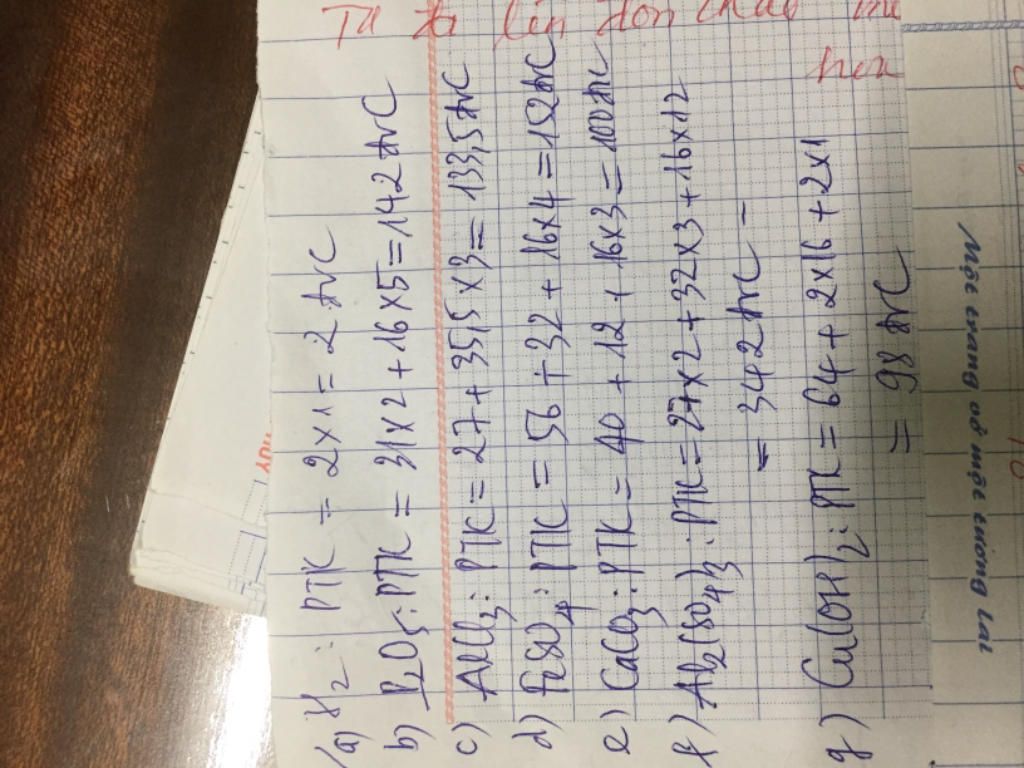 a) H2: PTK = 2x1 = 2 đvC
b) P2O5: PTK = 31x2 + 16x5 = 142 đvC
c) AlCl3: PTK = 27 + 35,5 x 3 = 133,5 đvC
d) FeSO4: PTK = 56 + 32 + 16x4 = 152 đvC
e) CaCO3: PTK = 40 + 12 + 16x3 = 100 đvC
f) Al2(SO4)3: PTK = 27x2 + 32x3 + 16x12
= 342 đvC
g) Cu(OH)2: PTK = 64 + 2x16 + 2x1
= 98 đvC
Một trang vở một tương lai